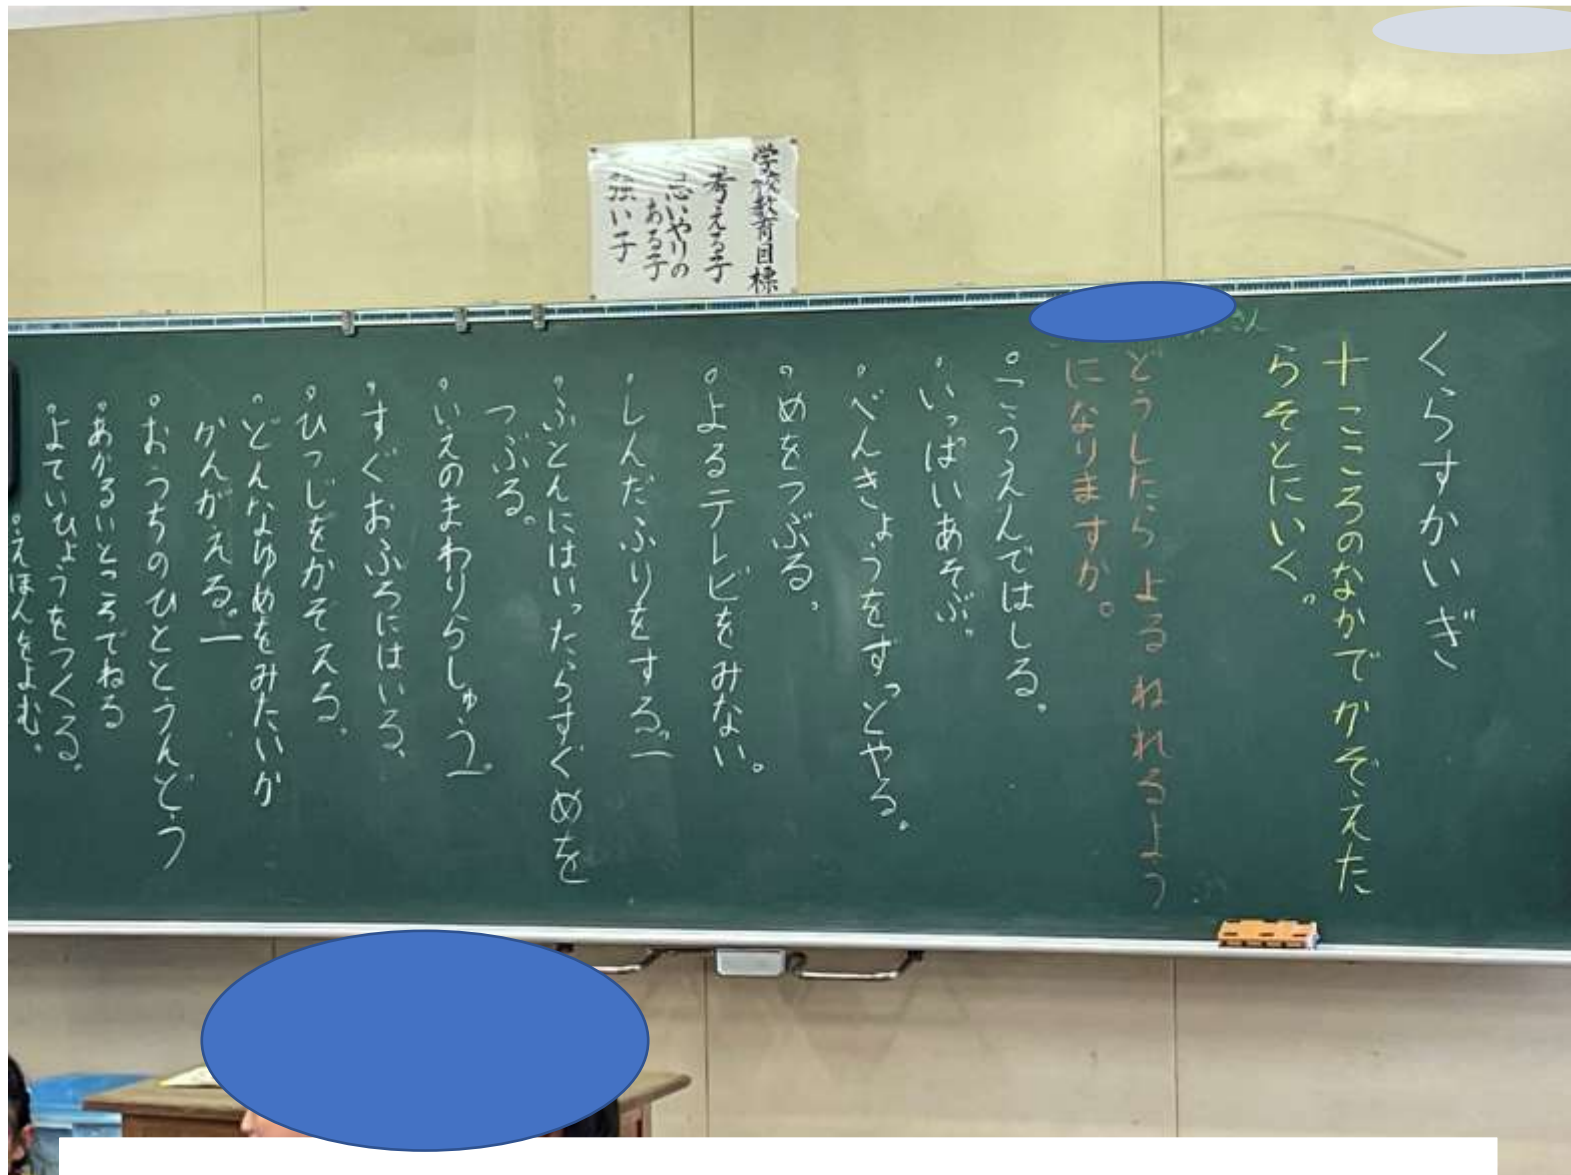 学校教育目標
考える子
思いやりの
ある子
強い子
くらすかいぎ
十こころのなかでかぞえた
らそとにいく。
さん
どうしたらよるねれるよう
になりますか。
。「こうえんではしる。
。いっぱいあそぶ。
。べんきょうをずっとやる。
。めをつぶる。
。よるテレビをみない。
。しんだふりをする。」
。ふとんにはいったらすぐめを
つぶる。
。いえのまわりらしゅう」。
。すぐおふろにはいる。
。ひつじをかぞえる。
。どんなゆめをみたいか
かんがえる。」
。おうちのひととうんどう
。あかるいところでねる
。よていひょうをつくる。
。えほんをよむ。